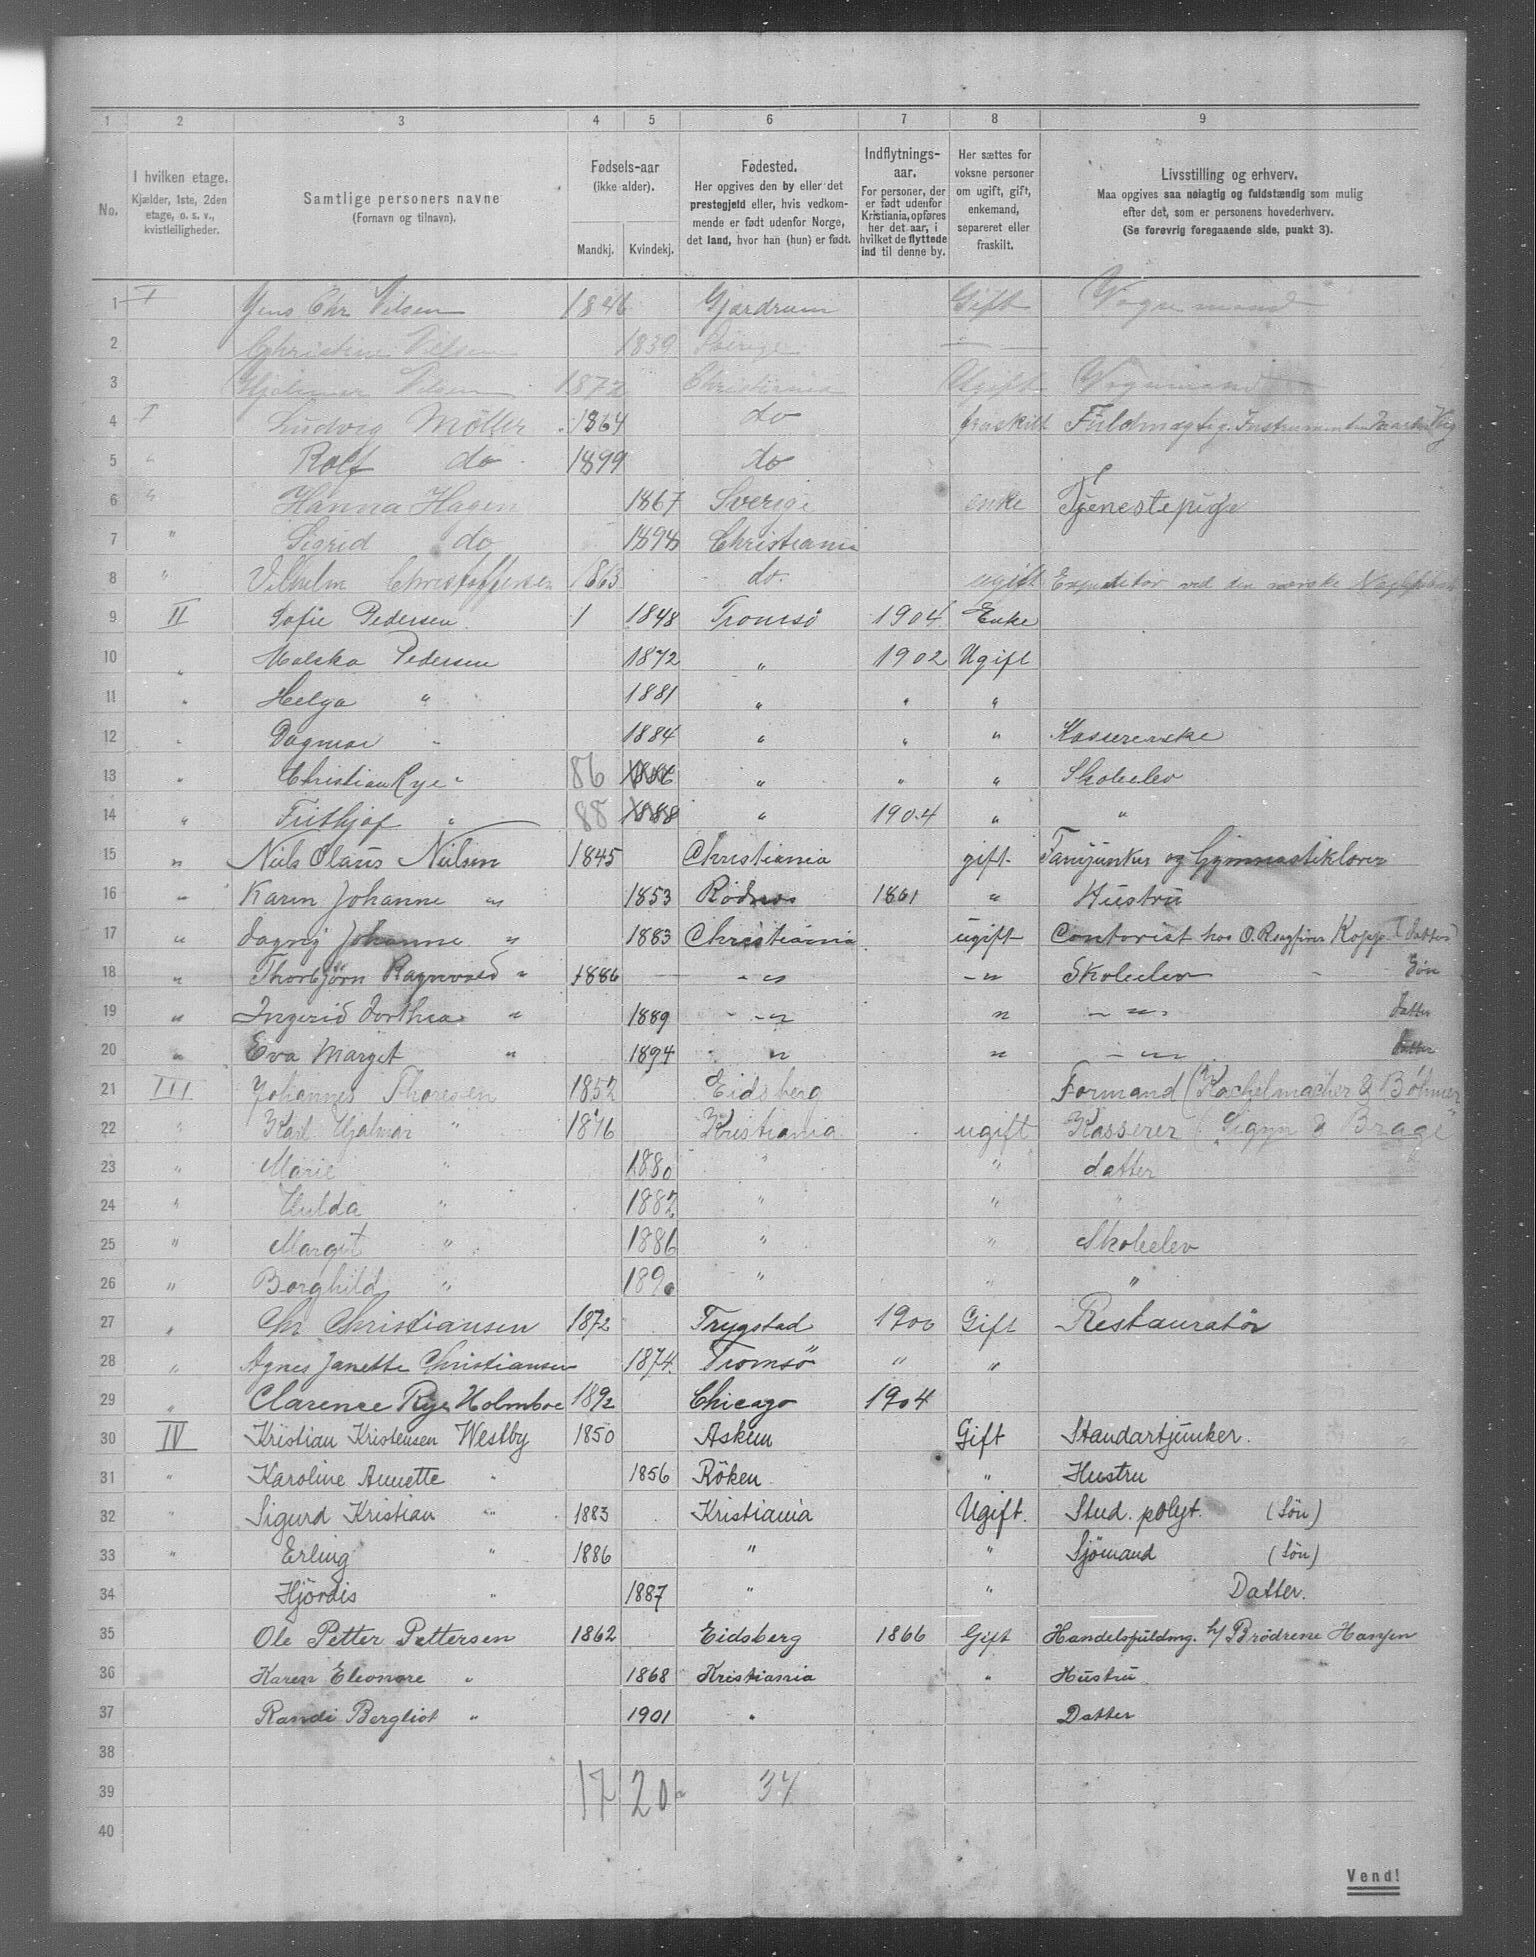 1 2 3 4 5 6 7 8 9
No.
I hvilken etage.
Kjælder, 1ste, 2den
etage, o. s. v.,
kvistleiligheder.
Samtlige personers navne
(Fornavn og tilnavn).
Fødsels-aar
(ikke alder).
Mandkj. Kvindekj.
Fødested.
Her opgives den by eller det
prestegjeld eller, hvis vedkom-
mende er født udenfor Norge,
det land, hvor han (hun) er født.
Indflytnings-
aar.
For personer, der
er født udenfor
Kristiania, opføres
her det aar, i
hvilket de flyttede
ind til denne by.
Her sættes for
voksne personer
om ugift, gift,
enkemand,
separeret eller
fraskilt.
Livsstilling og erhverv.
Maa opgives saa nøiagtig og fuldstændig som mulig
efter det, som er personens hovederhverv.
(Se forøvrig foregaaende side, punkt 3).
1 I Jens Chr Nilsen 1846 Gjærdrum Gift
2 Christine Nilsen 1839 Sverige
3 Hjalmar Nilsen 1872 Christiania Ugift
4 I Ludvig Möller 1864 do fraskilt Fuldmægtig
5 " Rolf do 1899 do
6 " Hanna Hagen 1867 Sverige enke Tjenestepige
7 " Sigrid do 1898 Christiania
8 " Vilhelm Christoffersen 1863 do. ugift Expeditör ved den norske
9 II Sofie Pedersen 1 1848 Tromsö 1904 Enke
10 " Pedersen 1872 " 1902 Ugift
11 " Helga " 1881 " " "
12 " Dagmar " 1884 " " " Kassererske
13 " Christian Rye " 86 1886 " " " Skoleelev
14 " Frithjof " 88 1888 " 1904 " "
15 " Niels Olaus Nielsen 1845 Christiania gift Fanejunker og Gymnastiklærer
16 " Karen Johanne " 1853 Rödnes 1861 " Hustru
17 " Dagny Johanne " 1883 Christiania ugift Contorist hos O. Kopp (datter)
18 " Thorbjörn Ragnvald " 1886 " " Skoleelev Sön
19 " Ingerid Dorthea " 1889 " " " Datter
20 " Eva Margit " 1894 " " " Datter
21 III Johannes Thoresen 1852 Eidsberg Formand (Kachelmacher & Böhmer
22 " Karl Hjalmar " 1876 Kristiania ugift Kasserer (Sigyn & Brage
23 " Marie " 1880 " " datter
24 " Hulda " 1882 " " "
25 " Margit " 1886 " " Skoleelev
26 " Borghild " 1890 " " "
27 " Chr Christiansen 1872 Trygstad 1900 Gift Restauratör
28 " Agnes Janette Christiansen 1874 Tromsö " "
29 " Clarence Rye Holmboe 1892 Chicago 1904
30 IV Kristian Kristensen Westby 1850 Askim Gift Standartjunker.
31 " Karoline Annette " 1856 Röken " Hustru
32 " Sigurd Kristian " 1883 Kristiania Ugift. Stud. polyt. (Sön)
33 " Erling " 1886 " " Sjömand (Sön)
34 Hjördis " 1887 " " Datter.
35 Ole Petter Pettersen 1862 Eidsberg 1866 Gift Handelsfuldmg. h/ Brödrene Hansen
36 Karen Eleonore " 1868 Kristiania " Hustru
37 Randi Bergliot " 1901 " Datter
38
39 17 20 37
40
Vend!